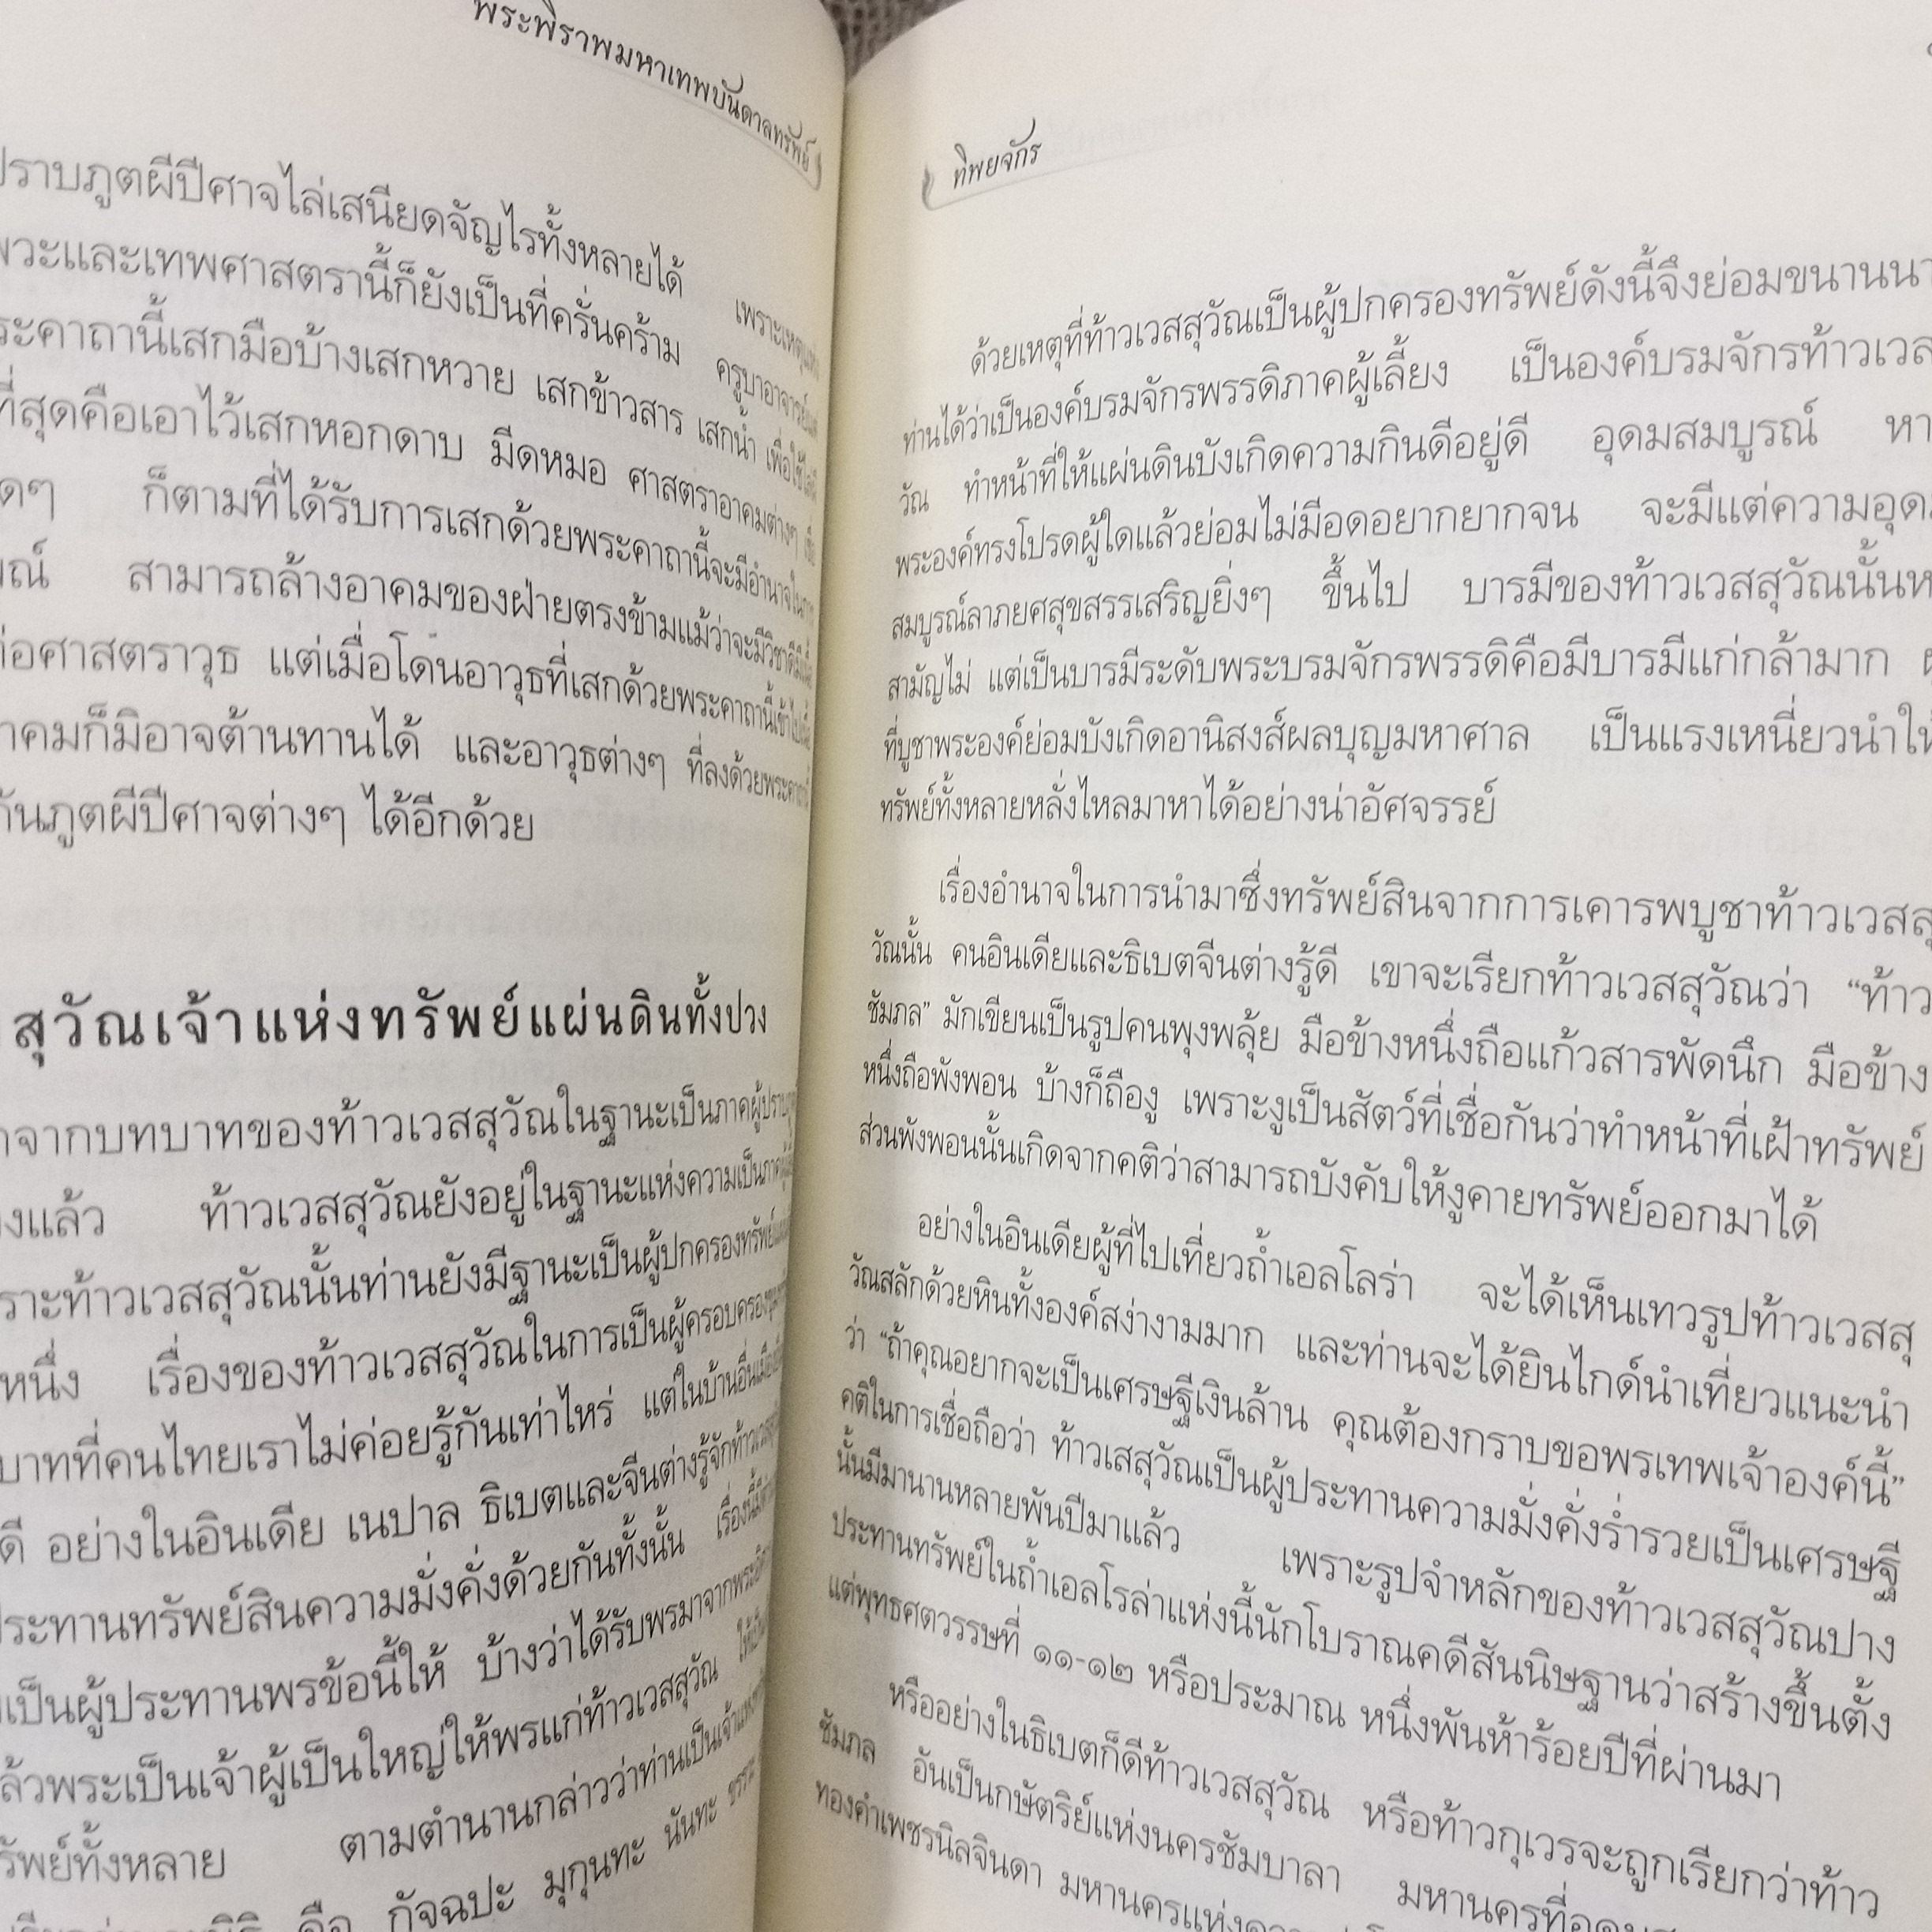 พระพิราพมหาเทพบันดาลทรัพย์
ปราบภูตผีปีศาจไล่เสนียดจัญไรทั้งหลายได้ เพราะเหตุ
และเทพศาสตรานี้ก็ยังเป็นที่ครั่นคร้าม ครูบาอาจารย์
คาถานี้เสกมือบ้างเสกหวาย เสกข้าวสาร เสกน้ำ เพื่อใช้
ที่สุดคือเอาไว้เสกหอกดาบ มีดหมอ ศาสตราอาคมต่างๆ
ก็ตามที่ได้รับการเสกด้วยพระคาถานี้จะมีอำนาจ
สามารถล้างอาคมของฝ่ายตรงข้ามแม้ว่าจะมีวิชาดี
ศาสตราวุธ แต่เมื่อโดนอาวุธที่เสกด้วยพระคาถานี้เข้าไป
าคมก็มิอาจต้านทานได้ และอาวุธต่างๆ ที่ลงด้วยพระคาถา
กันภูตผีปีศาจต่างๆ ได้อีกด้วย
สุวัณเจ้าแห่งทรัพย์แผ่นดินทั้งปวง
จากบทบาทของท้าวเวสสุวัณในฐานะเป็นภาคผู้ปราบ
งแล้ว ท้าวเวสสุวัณยังอยู่ในฐานะแห่งความเป็นภาค
ราะท้าวเวสสุวัณนั้นท่านยังมีฐานะเป็นผู้ปกครองทรัพย์
หนึ่ง เรื่องของท้าวเวสสุวัณในการเป็นผู้ครอบครอง
บาทที่คนไทยเราไม่ค่อยรู้กันเท่าไหร่ แต่ในบ้านอื่น
ดี อย่างในอินเดีย เนปาล ธิเบตและจีนต่างรู้จักท้าวเวส
ประทานทรัพย์สินความมั่งคั่งด้วยกันทั้งนั้น เรื่องนี้
เป็นผู้ประทานพรข้อนี้ให้ บ้างว่าได้รับพรมาจากพระ
ล้วพระเป็นเจ้าผู้เป็นใหญ่ให้พรแก่ท้าวเวสสุวัณ
รัพย์ทั้งหลาย ตามตำนานกล่าวว่าท่านเป็นเจ้า
คือ กัจฉปะ มุกุนทะ นันทะ
ทิพยจักร
ด้วยเหตุที่ท้าวเวสสุวัณเป็นผู้ปกครองทรัพย์ดังนี้จึงย่อมขนานนา
ท่านได้ว่าเป็นองค์บรมจักรพรรดิภาคผู้เลี้ยง เป็นองค์บรมจักรท้าวเวส
วัณ ทำหน้าที่ให้แผ่นดินบังเกิดความกินดีอยู่ดี อุดมสมบูรณ์ หา
พระองค์ทรงโปรดผู้ใดแล้วย่อมไม่มีอดอยากยากจน จะมีแต่ความอุด
สมบูรณ์ลาภยศสุขสรรเสริญยิ่งๆ ขึ้นไป บารมีของท้าวเวสสุวัณนั้นห
สามัญไม่ แต่เป็นบารมีระดับพระบรมจักรพรรดิคือมีบารมีแก่กล้ามาก
ที่บูชาพระองค์ย่อมบังเกิดอานิสงส์ผลบุญมหาศาล เป็นแรงเหนี่ยวนำให้
ทรัพย์ทั้งหลายหลั่งไหลมาหาได้อย่างน่าอัศจรรย์
เรื่องอำนาจในการนำมาซึ่งทรัพย์สินจากการเคารพบูชาท้าวเวสสุ
วัณนั้น คนอินเดียและธิเบตจีนต่างรู้ดี เขาจะเรียกท้าวเวสสุวัณว่า “ท้าว
ชัมภล” มักเขียนเป็นรูปคนพุงพลุ้ย มือข้างหนึ่งถือแก้วสารพัดนึก มือข้าง
หนึ่งถือพังพอน บ้างก็ถืองู เพราะงูเป็นสัตว์ที่เชื่อกันว่าทำหน้าที่เฝ้าทรัพย์
ส่วนพังพอนนั้นเกิดจากคติว่าสามารถบังคับให้งูคายทรัพย์ออกมาได้
อย่างในอินเดียผู้ที่ไปเที่ยวถ้ำเอลโลร่า จะได้เห็นเทวรูปท้าวเวสสุ
วัณสลักด้วยหินทั้งองค์สง่างามมาก และท่านจะได้ยินไกด์นำเที่ยวแนะนำ
ว่า “ถ้าคุณอยากจะเป็นเศรษฐีเงินล้าน คุณต้องกราบขอพรเทพเจ้าองค์นี้”
คติในการเชื่อถือว่า ท้าวเสสุวัณเป็นผู้ประทานความมั่งคั่งร่ำรวยเป็นเศรษฐี
นั้นมีมานานหลายพันปีมาแล้ว เพราะรูปจำหลักของท้าวเวสสุวัณปาง
ประทานทรัพย์ในถ้ำเอลโรล่าแห่งนี้นักโบราณคดีสันนิษฐานว่าสร้างขึ้นตั้ง
แต่พุทธศตวรรษที่ ๑๑-๑๒ หรือประมาณ หนึ่งพันห้าร้อยปีที่ผ่านมา
หรืออย่างในธิเบตก็ดีท้าวเวสสุวัณ หรือท้าวกุเวรจะถูกเรียกว่าท้าว
ชัมภล อันเป็นกษัตริย์แห่งนครชัมบาลา มหานครที่อุดม
ทองคำเพชรนิลจินดา มหานครแห่ง